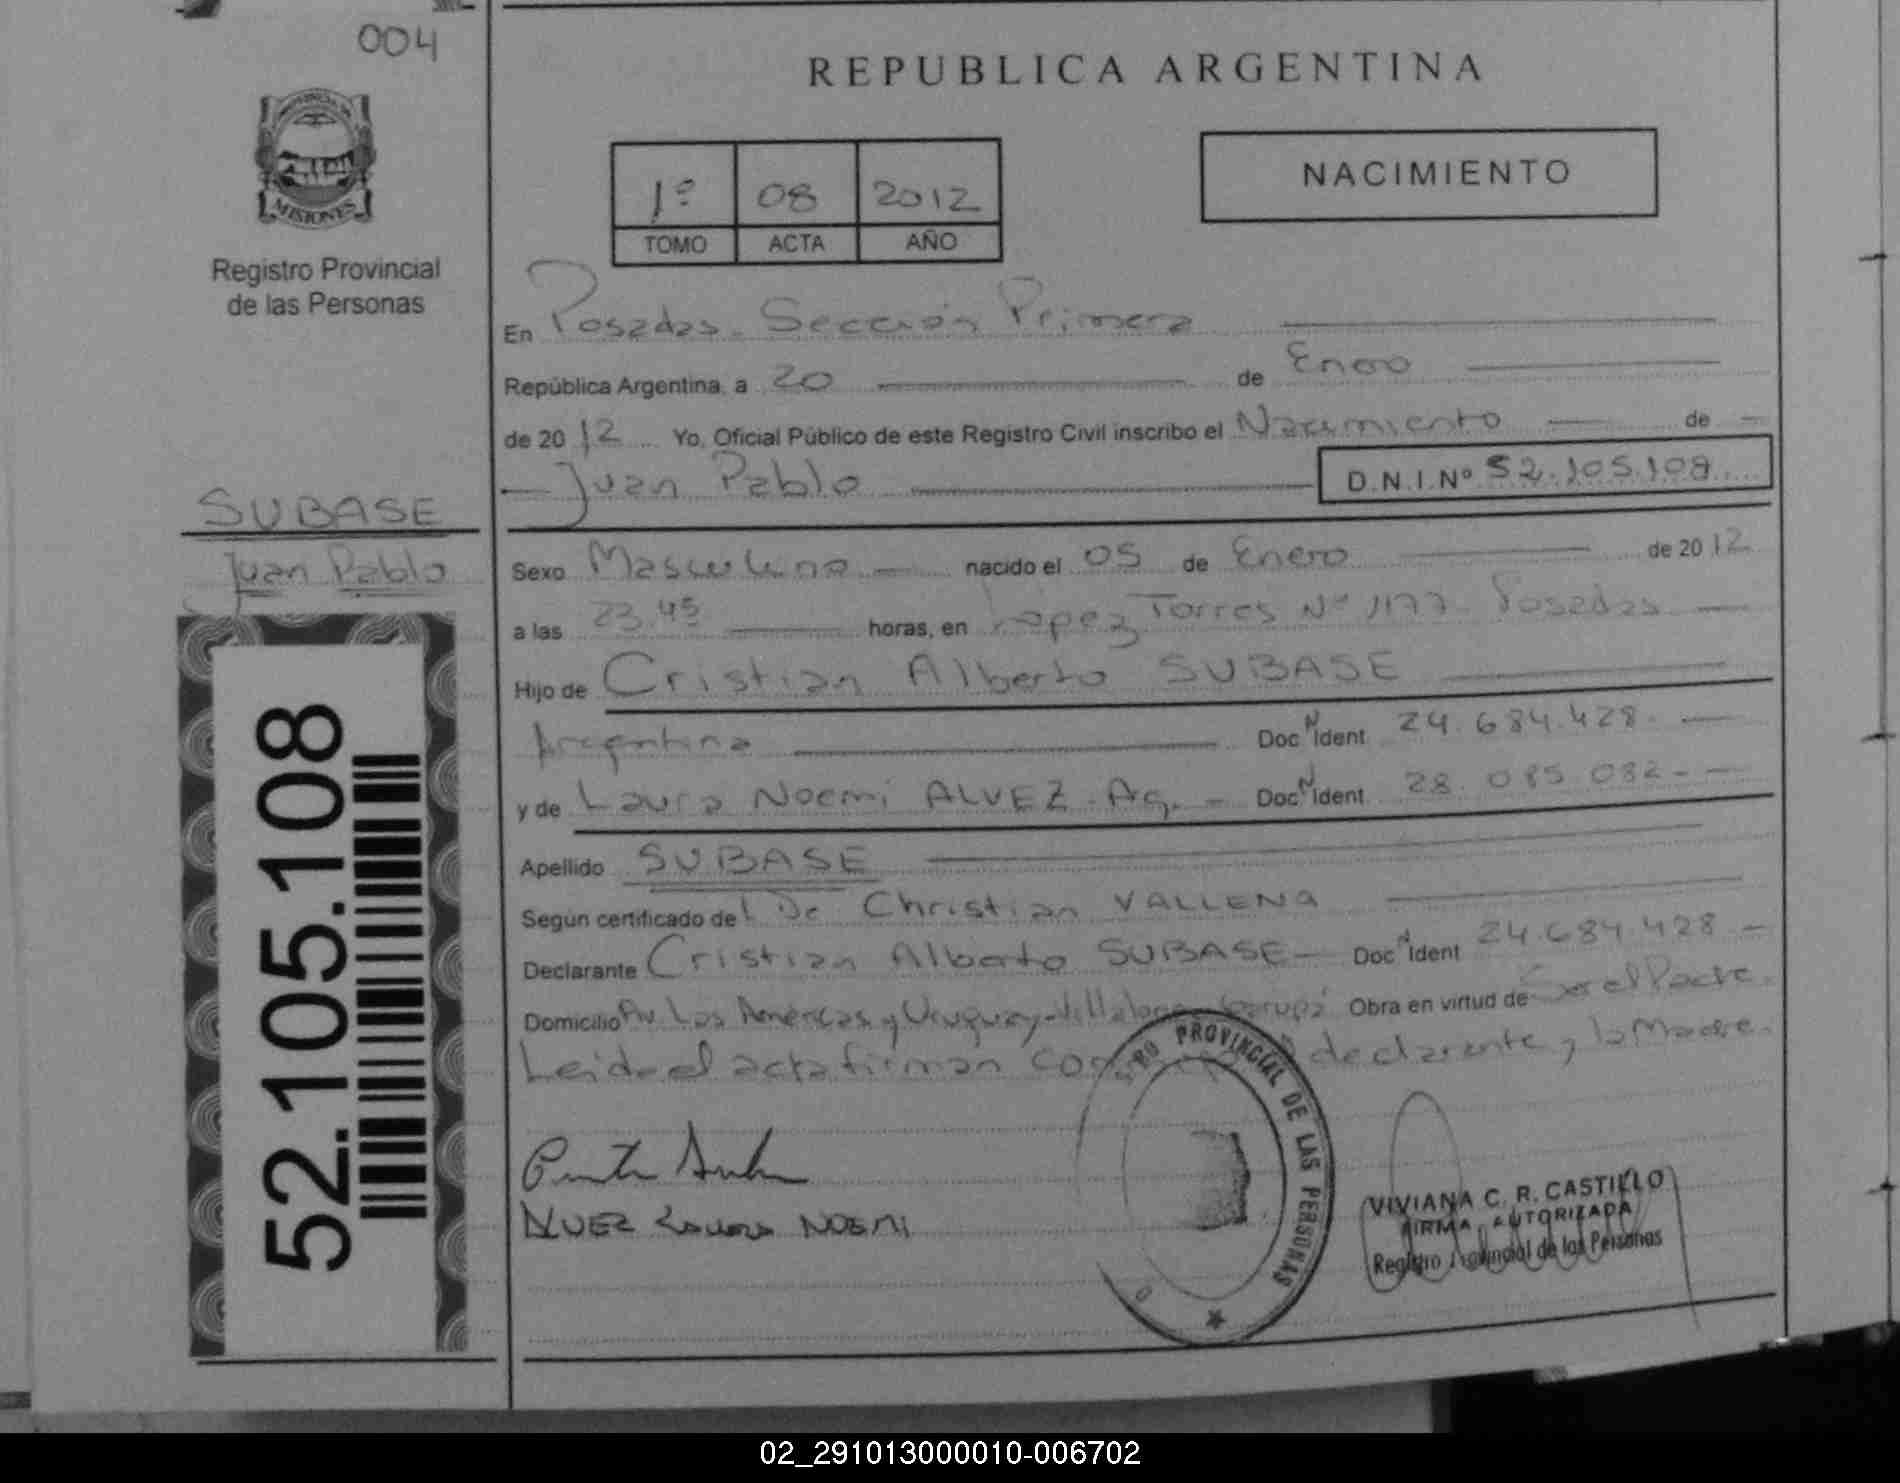 004
PROVINCIA DE
MISIONES
Registro Provincial
de las Personas
SUBASE
Juan Pablo
52.105.108
REPUBLICA ARGENTINA
1º 08 2012
TOMO ACTA AÑO
NACIMIENTO
En Posadas. Sección Primera
República Argentina, a 20 de Enero
de 2012 Yo, Oficial Público de este Registro Civil inscribo el Nacimiento de
Juan Pablo D.N.I.Nº 52.105.108
Sexo Masculino nacido el 05 de Enero de 2012
a las 23.45 horas, en Lopez Torres Nº 1177 - Posadas
Hijo de Cristian Alberto SUBASE
Argentina Doc N Ident 24.684.428.
y de Laura Noemi ALVEZ. Ag. Doc N Ident 28.085.082.-
Apellido SUBASE
Según certificado del Dr Christian VALLENA
Declarante Cristian Alberto SUBASE Doc N Ident 24.684.428
Domicilio Av Las Américas y Uruguay - Garupá Obra en virtud de Ser el Padre.
Leida el acta firman declarante y la Madre.
ALVEZ Laura NOEMI
PROVINCIAL DE LAS PERSONAS
VIVIANA C. R. CASTILLO
FIRMA AUTORIZADA
Registro Provincial de las Personas
02_291013000010-006702